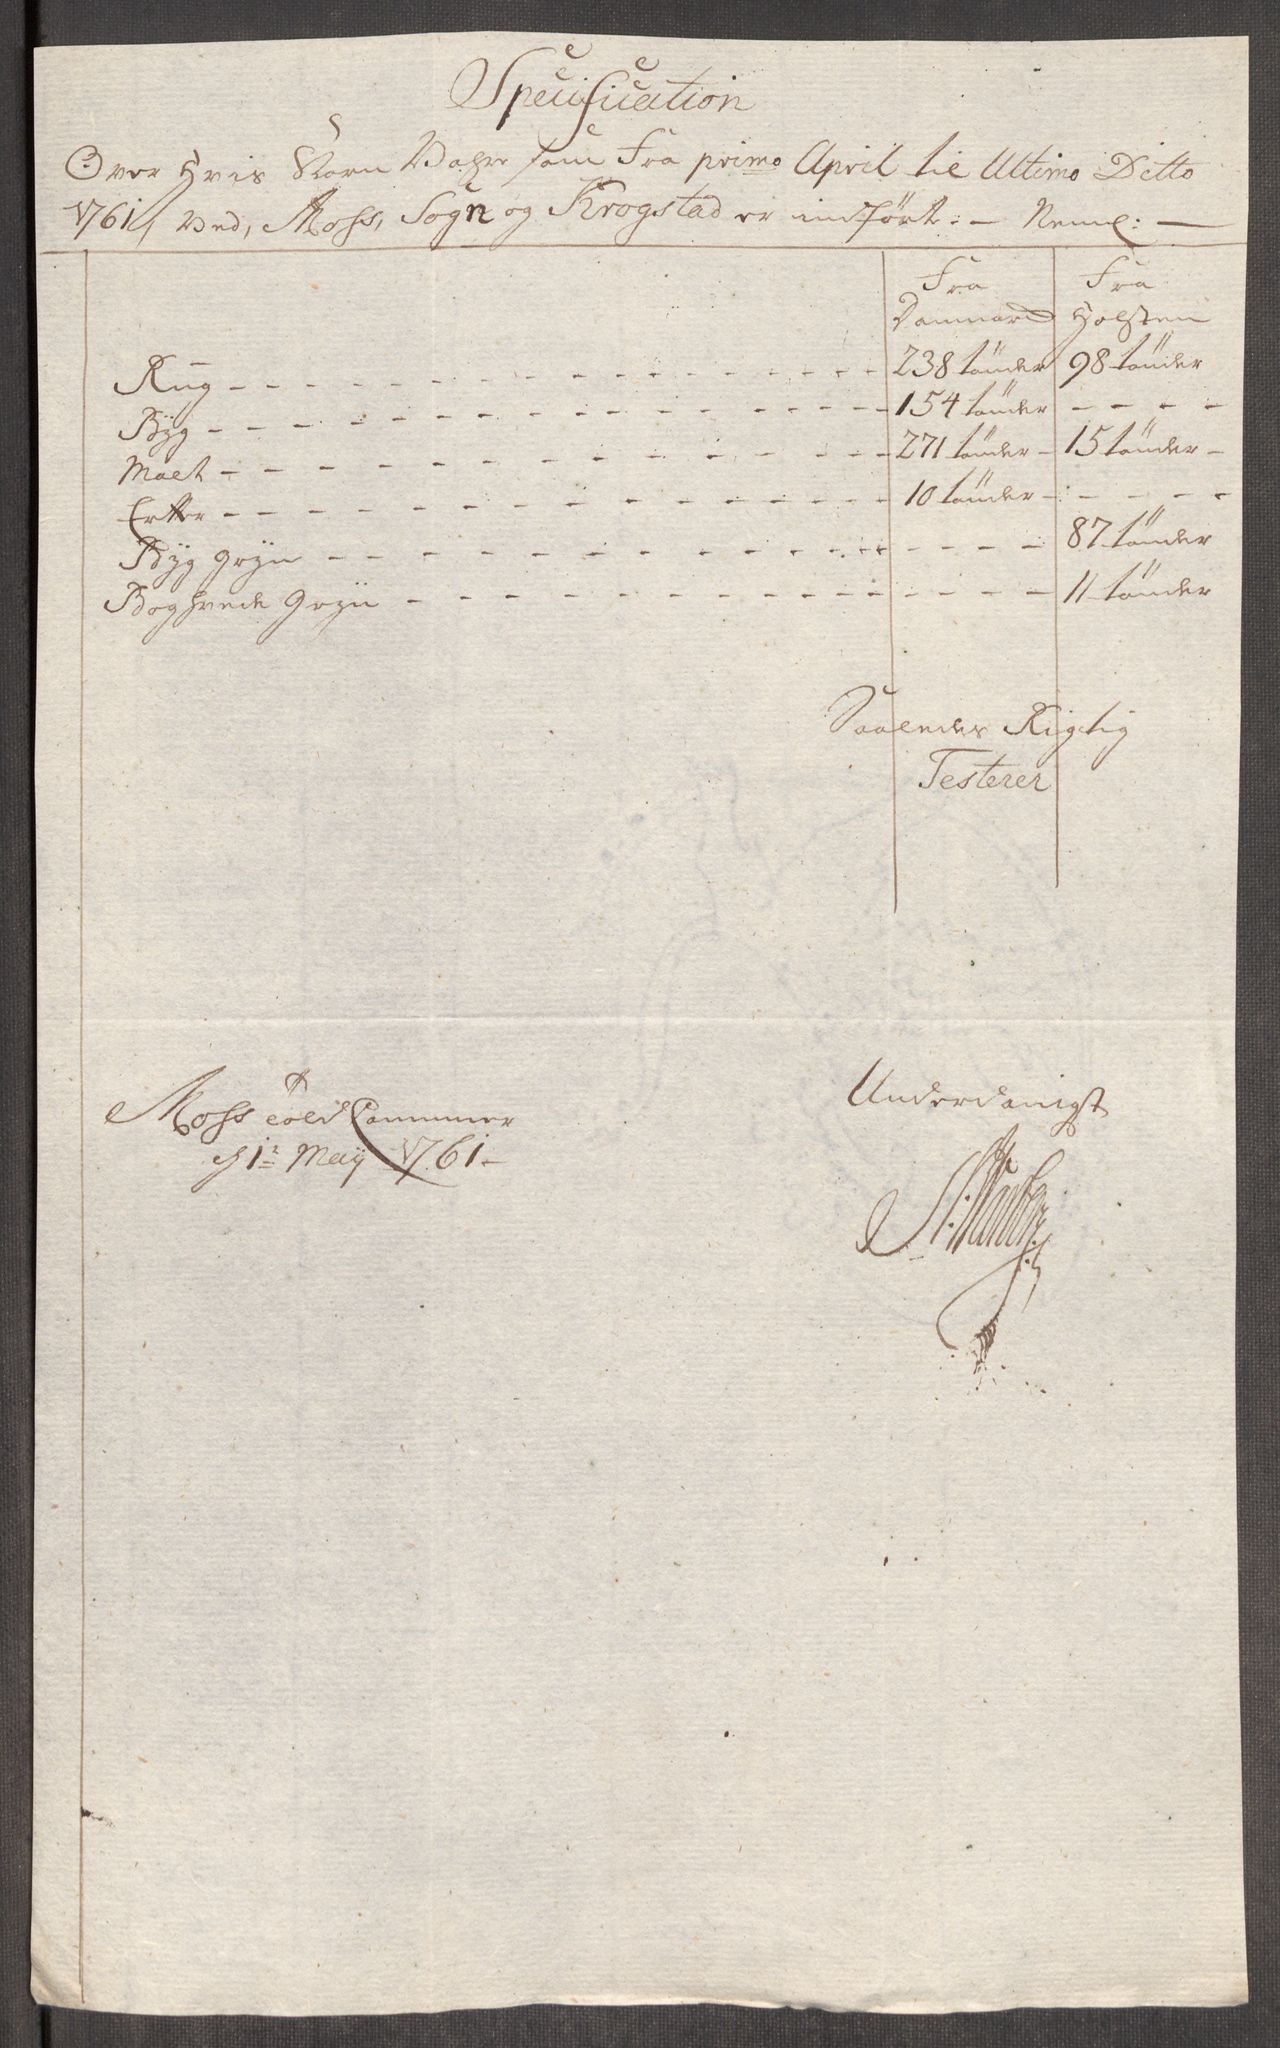 Specification
Over Hvis Korn Vahre som Fra primo April til Ultimo Ditto
1761, Ved, Moss, Sogn og Krogstad er indført: – Neml: –
Fra Fra
Danmard Holsten
Rug - - - 238 tönder 98 tönder
Byg - - - 154 tönder - - - -
Malt - - - 271 tönder - 15 tönder -
Ertter - - - 10 tönder - - - -
Byg gryn - - - - - - 87 tönder
Boghvede Gryn - - - - - - 11 tönder
Saaledes Rigtig
Testerer
Moss told Cammer
d 1te Maÿ 1761
Underdanigst